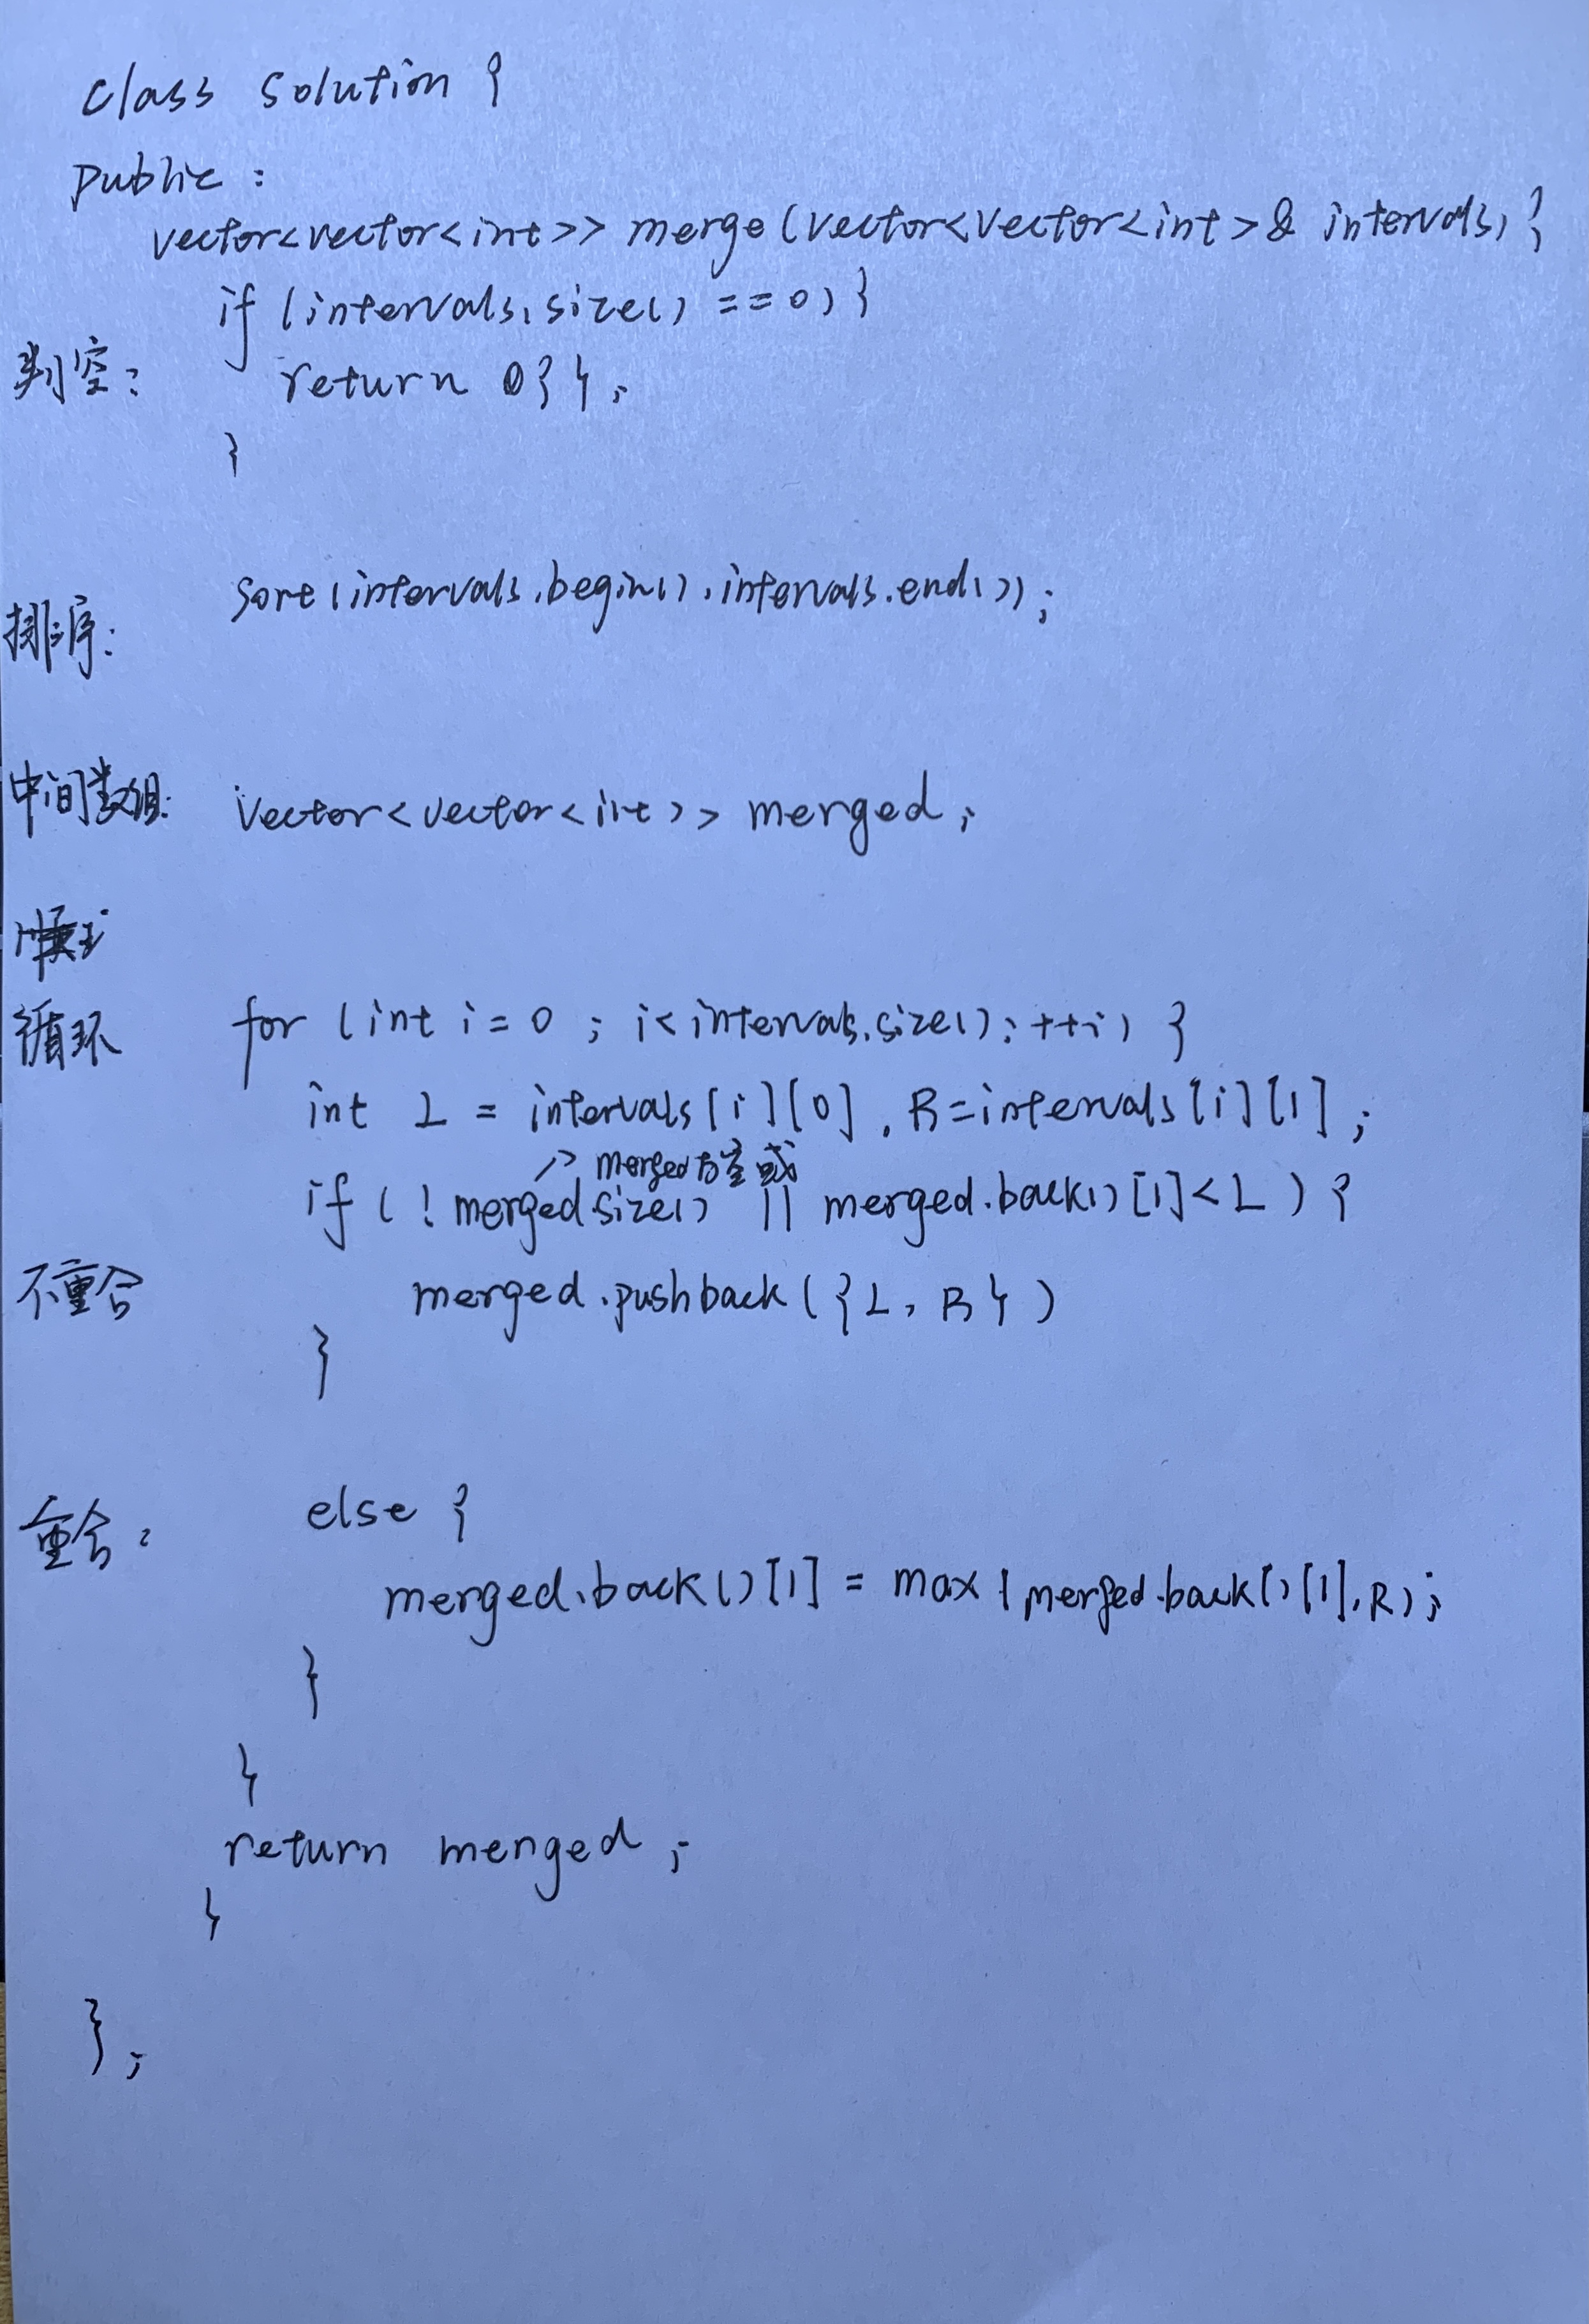 class Solution {
public :
vector<vector<int>> merge(vector<vector<int>& intervals) {
if (intervals.size() == 0) {
判空: return {} ;
}
排序: sort(intervals.begin(), intervals.end());
中间数组: vector<vector<int>> merged;
循环 for (int i = 0 ; i<intervals.size(); ++i) {
int L = intervals[i][0], R=intervals[i][1];
merged为空或
if ( ! merged.size() || merged.back()[1]<L ) {
不重合 merged.pushback({L, R})
}
重合: else {
merged.back()[1] = max(merged.back()[1],R);
}
}
return merged ;
}
};